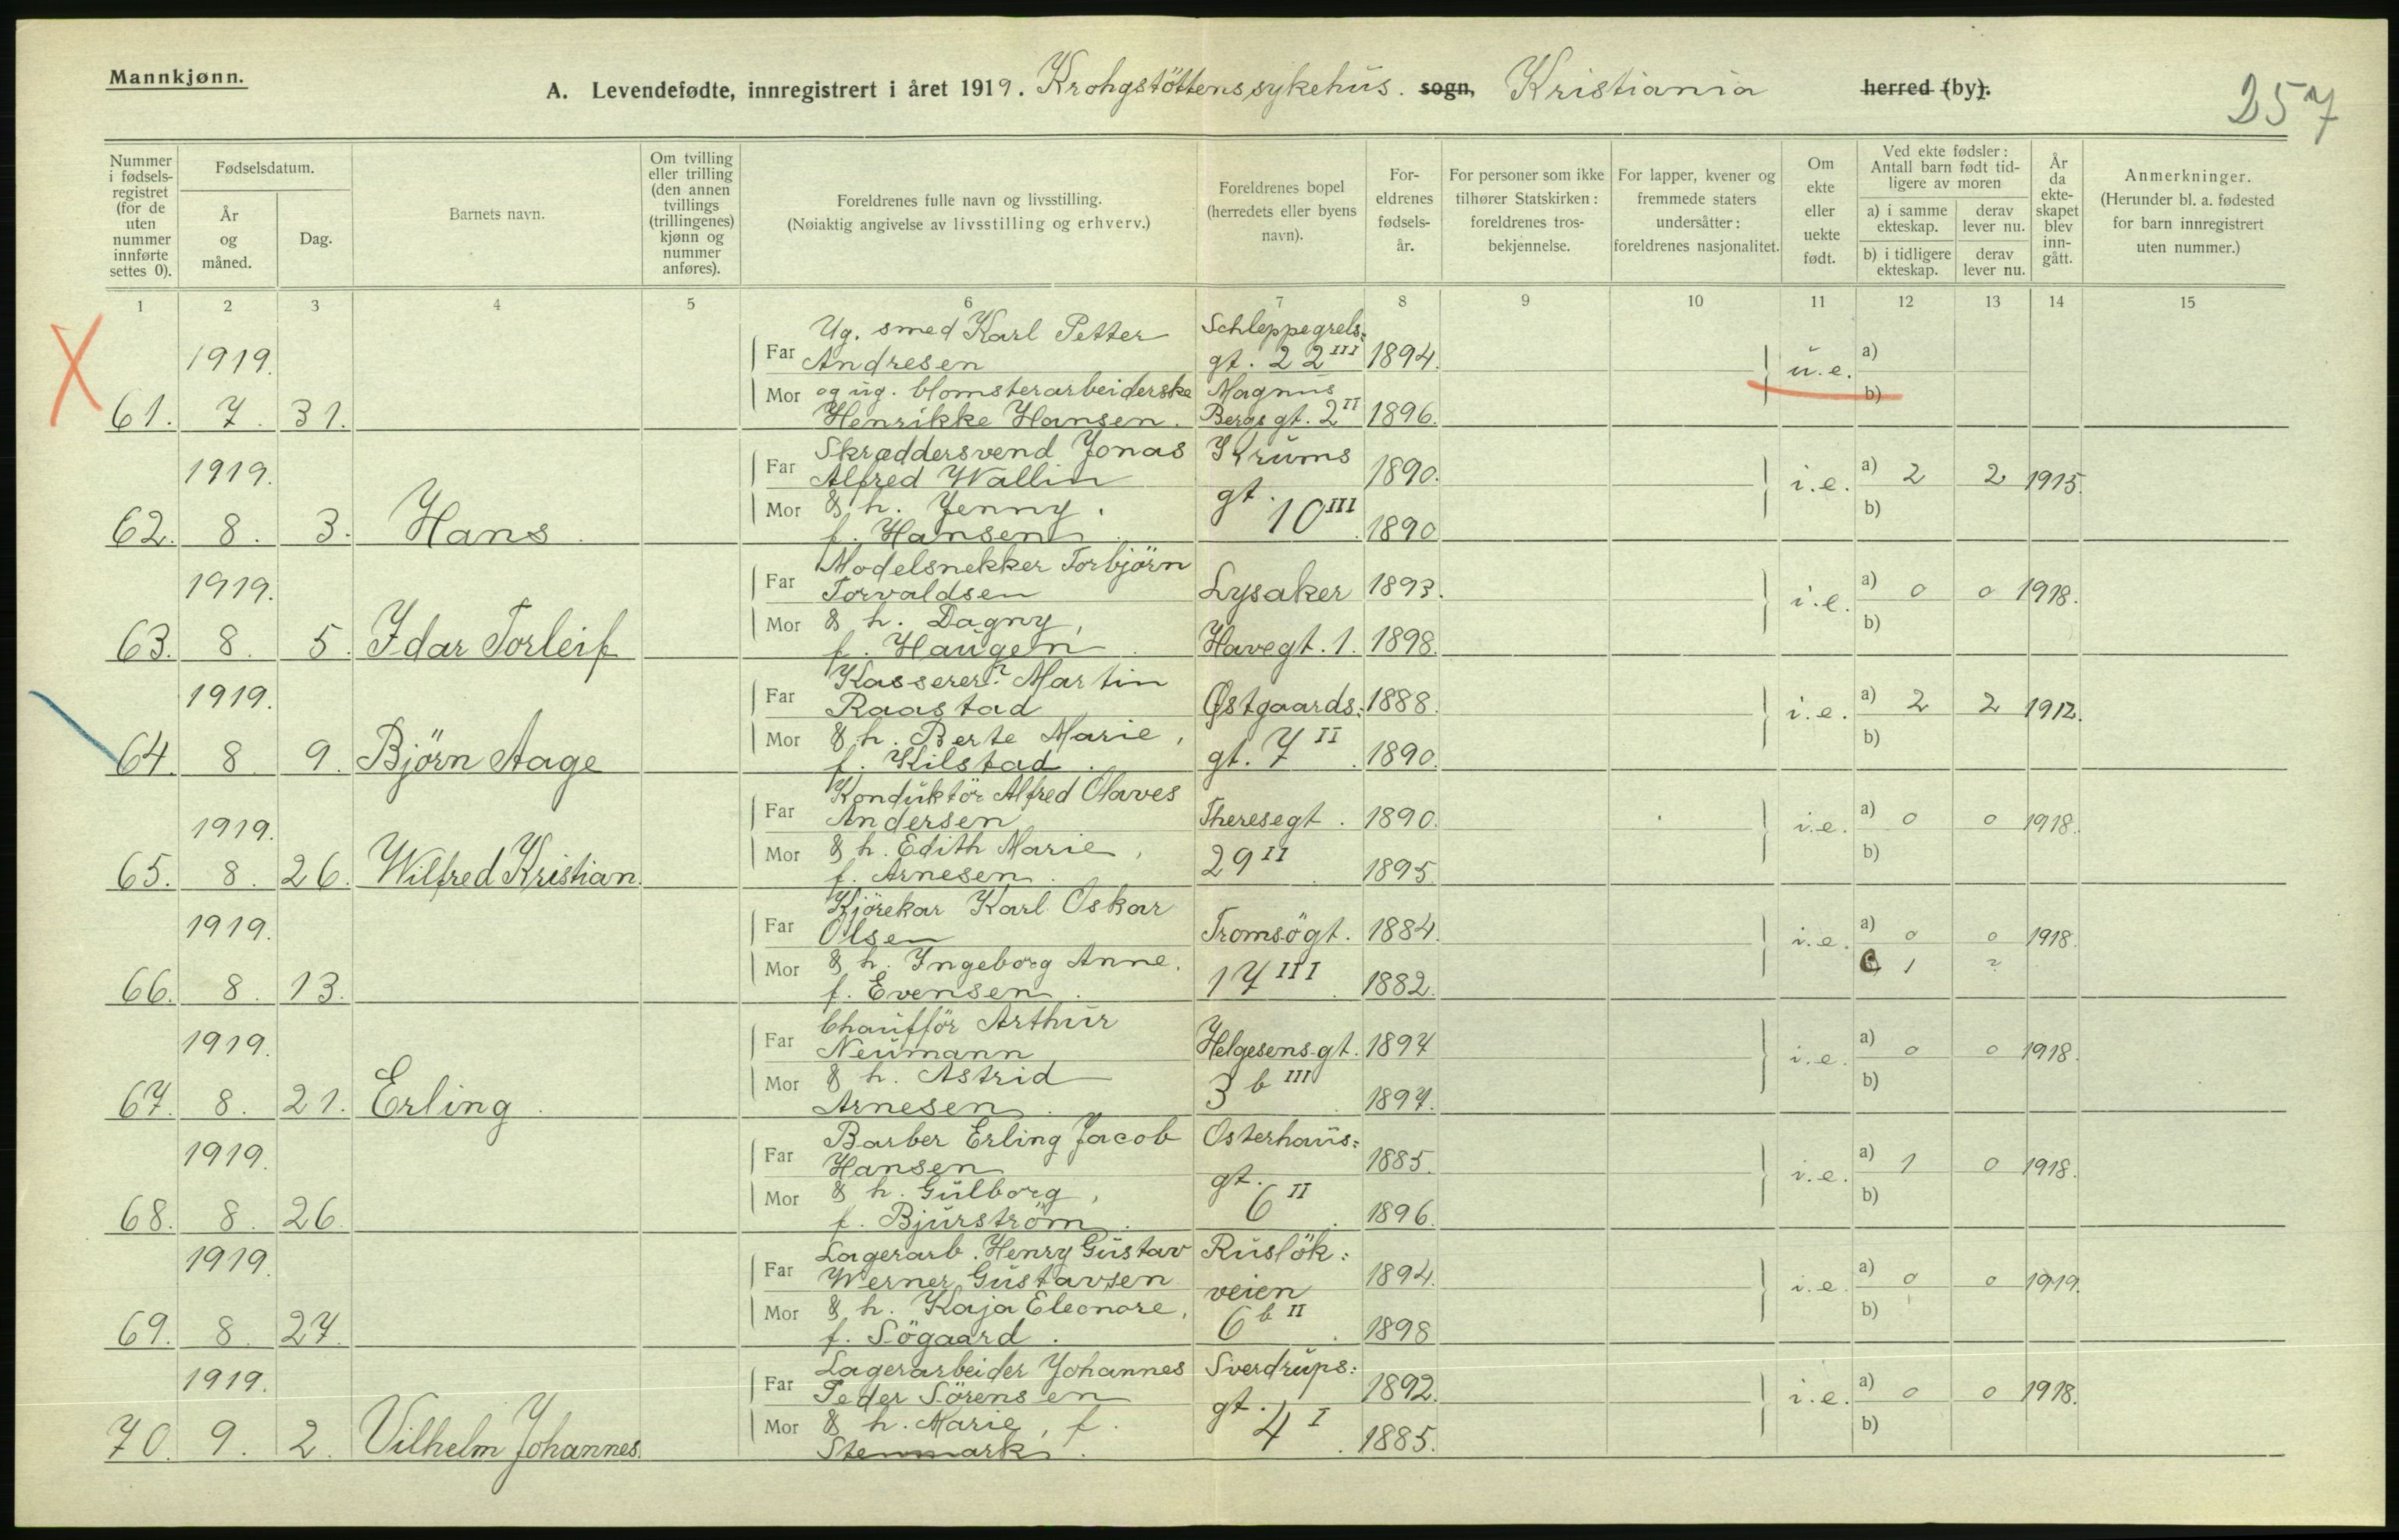 Mannkjønn.
A. Levendefødte, innregistrert i året 1919. Krohgstöttens sykehus. sogn, Kristiania herred (by).
257
Nummer i fødsels-registret (for de uten nummer innførte settes 0).
Fødselsdatum.
År og måned.
Dag.
Barnets navn.
Om tvilling eller trilling (den annen tvillings (trillingenes) kjønn og nummer anføres).
Foreldrenes fulle navn og livsstilling.
(Nøiaktig angivelse av livsstilling og erhverv.)
Foreldrenes bopel (herredets eller byens navn).
For-eldrenes fødsels-år.
For personer som ikke tilhører Statskirken: foreldrenes tros-bekjennelse.
For lapper, kvener og fremmede staters undersåtter: foreldrenes nasjonalitet.
Om ekte eller uekte født.
Ved ekte fødsler: Antall barn født tid-ligere av moren
a) i samme ekteskap.
derav lever nu.
b) i tidligere ekteskap.
derav lever nu.
År da ekte-skapet blev inn-gått.
Anmerkninger.
(Herunder bl. a. fødested for barn innregistrert uten nummer.)
1 2 3 4 5 6 7 8 9 10 11 12 13 14 15
X
Ug. smed Karl Petter Schleppegrels=
1919. Far Andresen gt. 22 III 1894. u.e. a)
Mor og ug. blomsterarbeiderske Magnus b)
61. 7. 31. Henrikke Hansen. Bergs gt. 2 II 1896.
Skræddersvend Jonas Krums
1919. Far Alfred Wallin gt. 1890. i.e. a) 2 2 1915.
Mor & h. Jenny, 10 III b)
62. 8. 3. Hans f. Hansen. 1890
Modelsnekker Torbjörn
1919. Far Torvaldsen Lysaker 1893. i.e. a) 0 0 1918.
Mor & h. Dagny, b)
63. 8. 5. Idar Torleif f. Haugen. Havegt. 1. 1898.
Kasserer? Martin
1919. Far Raastad Østgaards= 1888. i.e. a) 2 2 1912.
Mor & h. Berte Marie, b)
64. 8. 9. Björn Aage f. Kilstad. gt. 7 II 1890.
Konduktör Alfred Olaves
1919. Far Andersen Theresegt. 1890. i.e. a) 0 0 1918.
Mor & h. Edith Marie, b)
65. 8. 26. Wilfred Kristian. f. Arnesen. 29 II 1895
Kjörekar Karl Oskar
1919. Far Olsen Tromsögt. 1884. i.e. a) 0 0 1918.
Mor & h. Ingeborg Anne, 1 ?
66. 8. 13. f. Evensen. 17 III 1882.
Chauffför Arthur
1919. Far Neumann Helgesens gt. 1897 i.e. a) 0 0 1918.
Mor & h. Astrid 3 b III b)
67. 8. 21. Erling. Arnesen. 1897.
Barber Erling Jacob Osterhaus=
1919. Far Hansen gt. 1885. i.e. a) 1 0 1918.
Mor & h. Gulborg, 6 II b)
68. 8. 26. f. Bjurström. 1896.
Lagerarb. Henry Gustav Ruslök=
1919. Far Werner Gustavsen veien 1894. i.e. a) 0 0 1919.
Mor & h. Kaja Eleonore, 6 b II b)
69. 8. 27. f. Sögaard. 1898
Lagerarbeider Johannes Sverdrups=
1919. Far Peder Sörensen gt. 1892. i.e. a) 0 0 1918.
Mor & h. Marie, f. 4 I b)
70. 9. 2. Vilhelm Johannes. Stenmark. 1885.